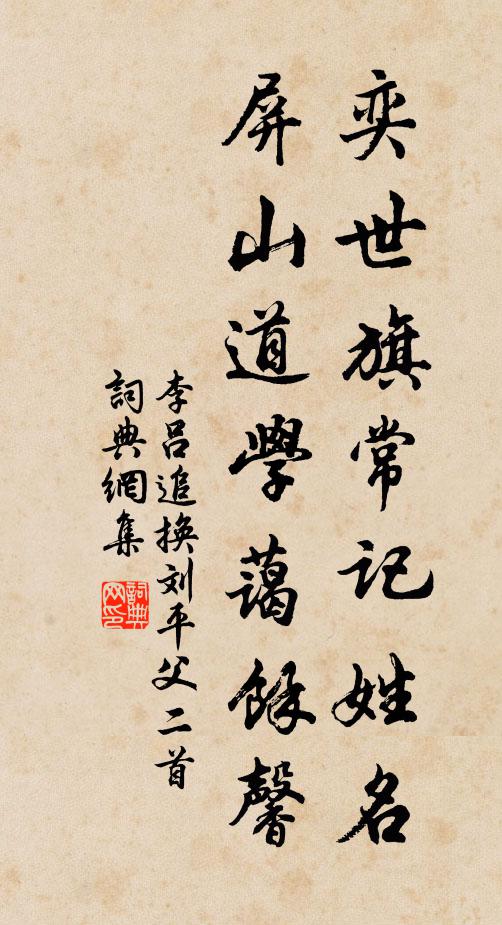 奕世旗常记姓名
屏山道學蔼餘馨
李吕追换刘平父二首
詞典網集
詞典网印